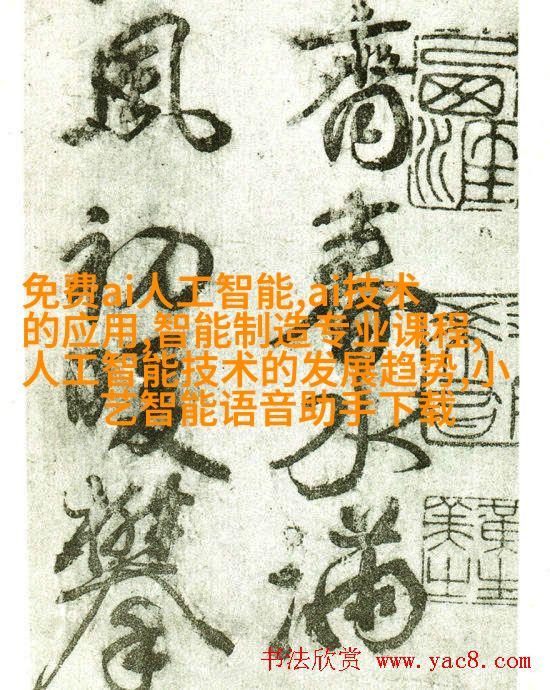 免费ai人工智能,ai技术
的应用,智能制造专业课程,
人工智能技术的发展趋势,小
艺智能语音助手下载
水
風初暖攀
书法欣赏 www.yac8.com